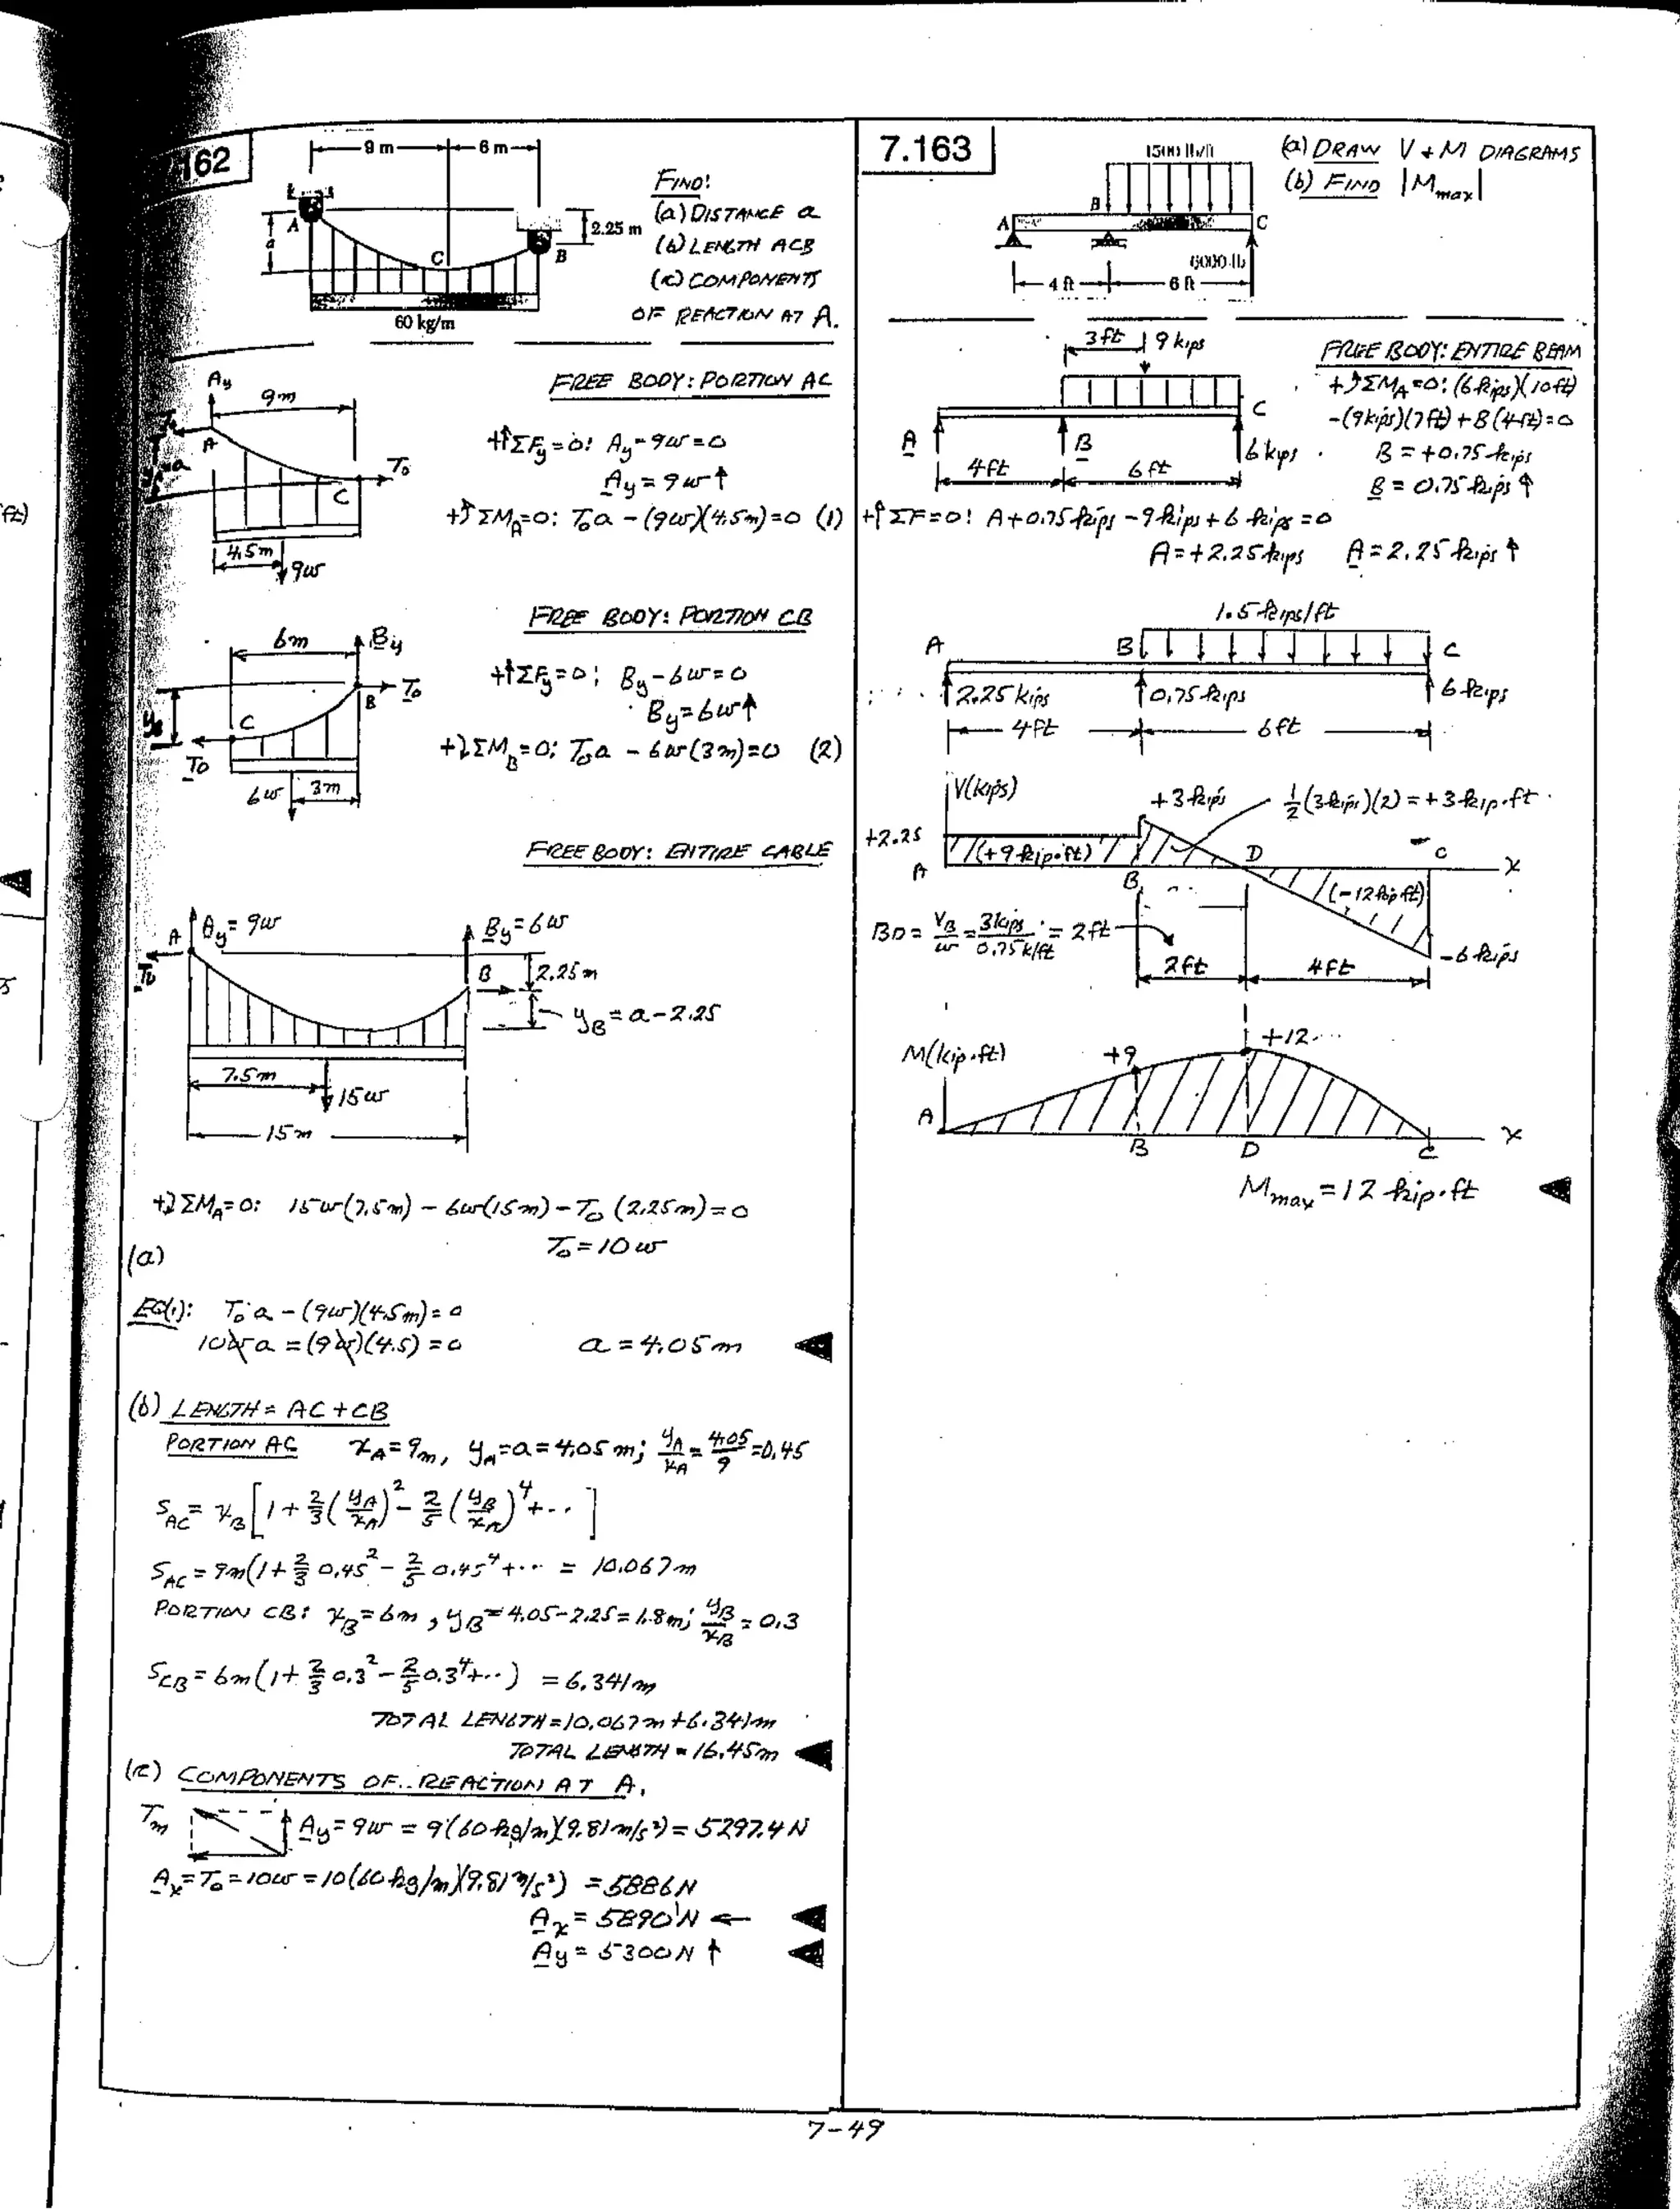 162
9 m
6 m
A
a
C
B
2.25 m
60 kg/m
FIND:
(a) DISTANCE a
(b) LENGTH ACB
(c) COMPONENTS
OF REACTION AT A.
FREE BODY: PORTION AC
Ay
9m
To
A
yA=a
C
To
4.5m
9w
+↑ΣFy=0: Ay-9w=0
Ay=9w↑
+↰ΣMA=0: Toa - (9w)(4.5m)=0 (1)
FREE BODY: PORTION CB
6m
By
B
To
yB
C
To
6w
3m
+↑ΣFy=0; By-6w=0
By=6w↑
+⤵ΣMB=0; Toa - 6w(3m)=0 (2)
FREE BODY: ENTIRE CABLE
A
Ay=9w
By=6w
To
B
2.25m
yB=a-2.25
7.5m
15w
15m
+⤵ΣMA=0: 15w(7.5m) - 6w(15m) - To (2.25m)=0
To=10w
(a)
EQ(1): Toa - (9w)(4.5m)=0
10wa = (9w)(4.5) = 0 a = 4.05m
(b) LENGTH = AC + CB
PORTION AC xA=9m, yA=a=4.05m; yA/xA = 4.05/9 = 0.45
SAC = xB[1 + 2/3 (yA/xA)² - 2/5 (yB/xA)⁴ + ...]
SAC = 9m(1 + 2/3 0.45² - 2/5 0.45⁴ + ... = 10.067m
PORTION CB: xB=6m, yB=4.05-2.25=1.8m; yB/xB = 0.3
SCB = 6m(1 + 2/3 0.3² - 2/5 0.3⁴ + ..) = 6.341m
TOTAL LENGTH = 10.067m + 6.341m
TOTAL LENGTH = 16.45m
(c) COMPONENTS OF REACTION AT A.
Tm
Ay = 9w = 9(60 kg/m)(9.81 m/s²) = 5297.4 N
Ax=To=10w=10(60 kg/m)(9.81 m/s²) = 5886N
Ax = 5890 N ←
Ay = 5300 N ↑
7.163
1500 lb/ft
B
A
C
6000 lb
4 ft
6 ft
(a) DRAW V + M DIAGRAMS
(b) FIND |Mmax|
3ft
9 kips
C
A
B
6 kips
4ft
6 ft
FREE BODY: ENTIRE BEAM
+↰ΣMA=0: (6 kips)(10ft)
-(9kips)(7ft)+B(4ft)=0
B = +0.75 kips
B = 0.75 kips ↑
+↑ΣF=0: A+0.75 kips -9 kips+6 kips =0
A=+2.25 kips A=2.25 kips ↑
1.5 kips/ft
A
B
C
2.25 kips
0.75 kips
6 kips
4ft
6ft
V(kips)
+3 kips
½(3 kips)(2)=+3 kip·ft
+2.25
(+9 kip·ft)
A
B
D
C
x
(-12 kip·ft)
BD = VB/w = 3kips/0.75 k/ft = 2ft
2ft
4ft
-6 kips
M(kip·ft)
+9
+12
A
B
D
C
x
Mmax = 12 kip·ft
7-49
ft)
5